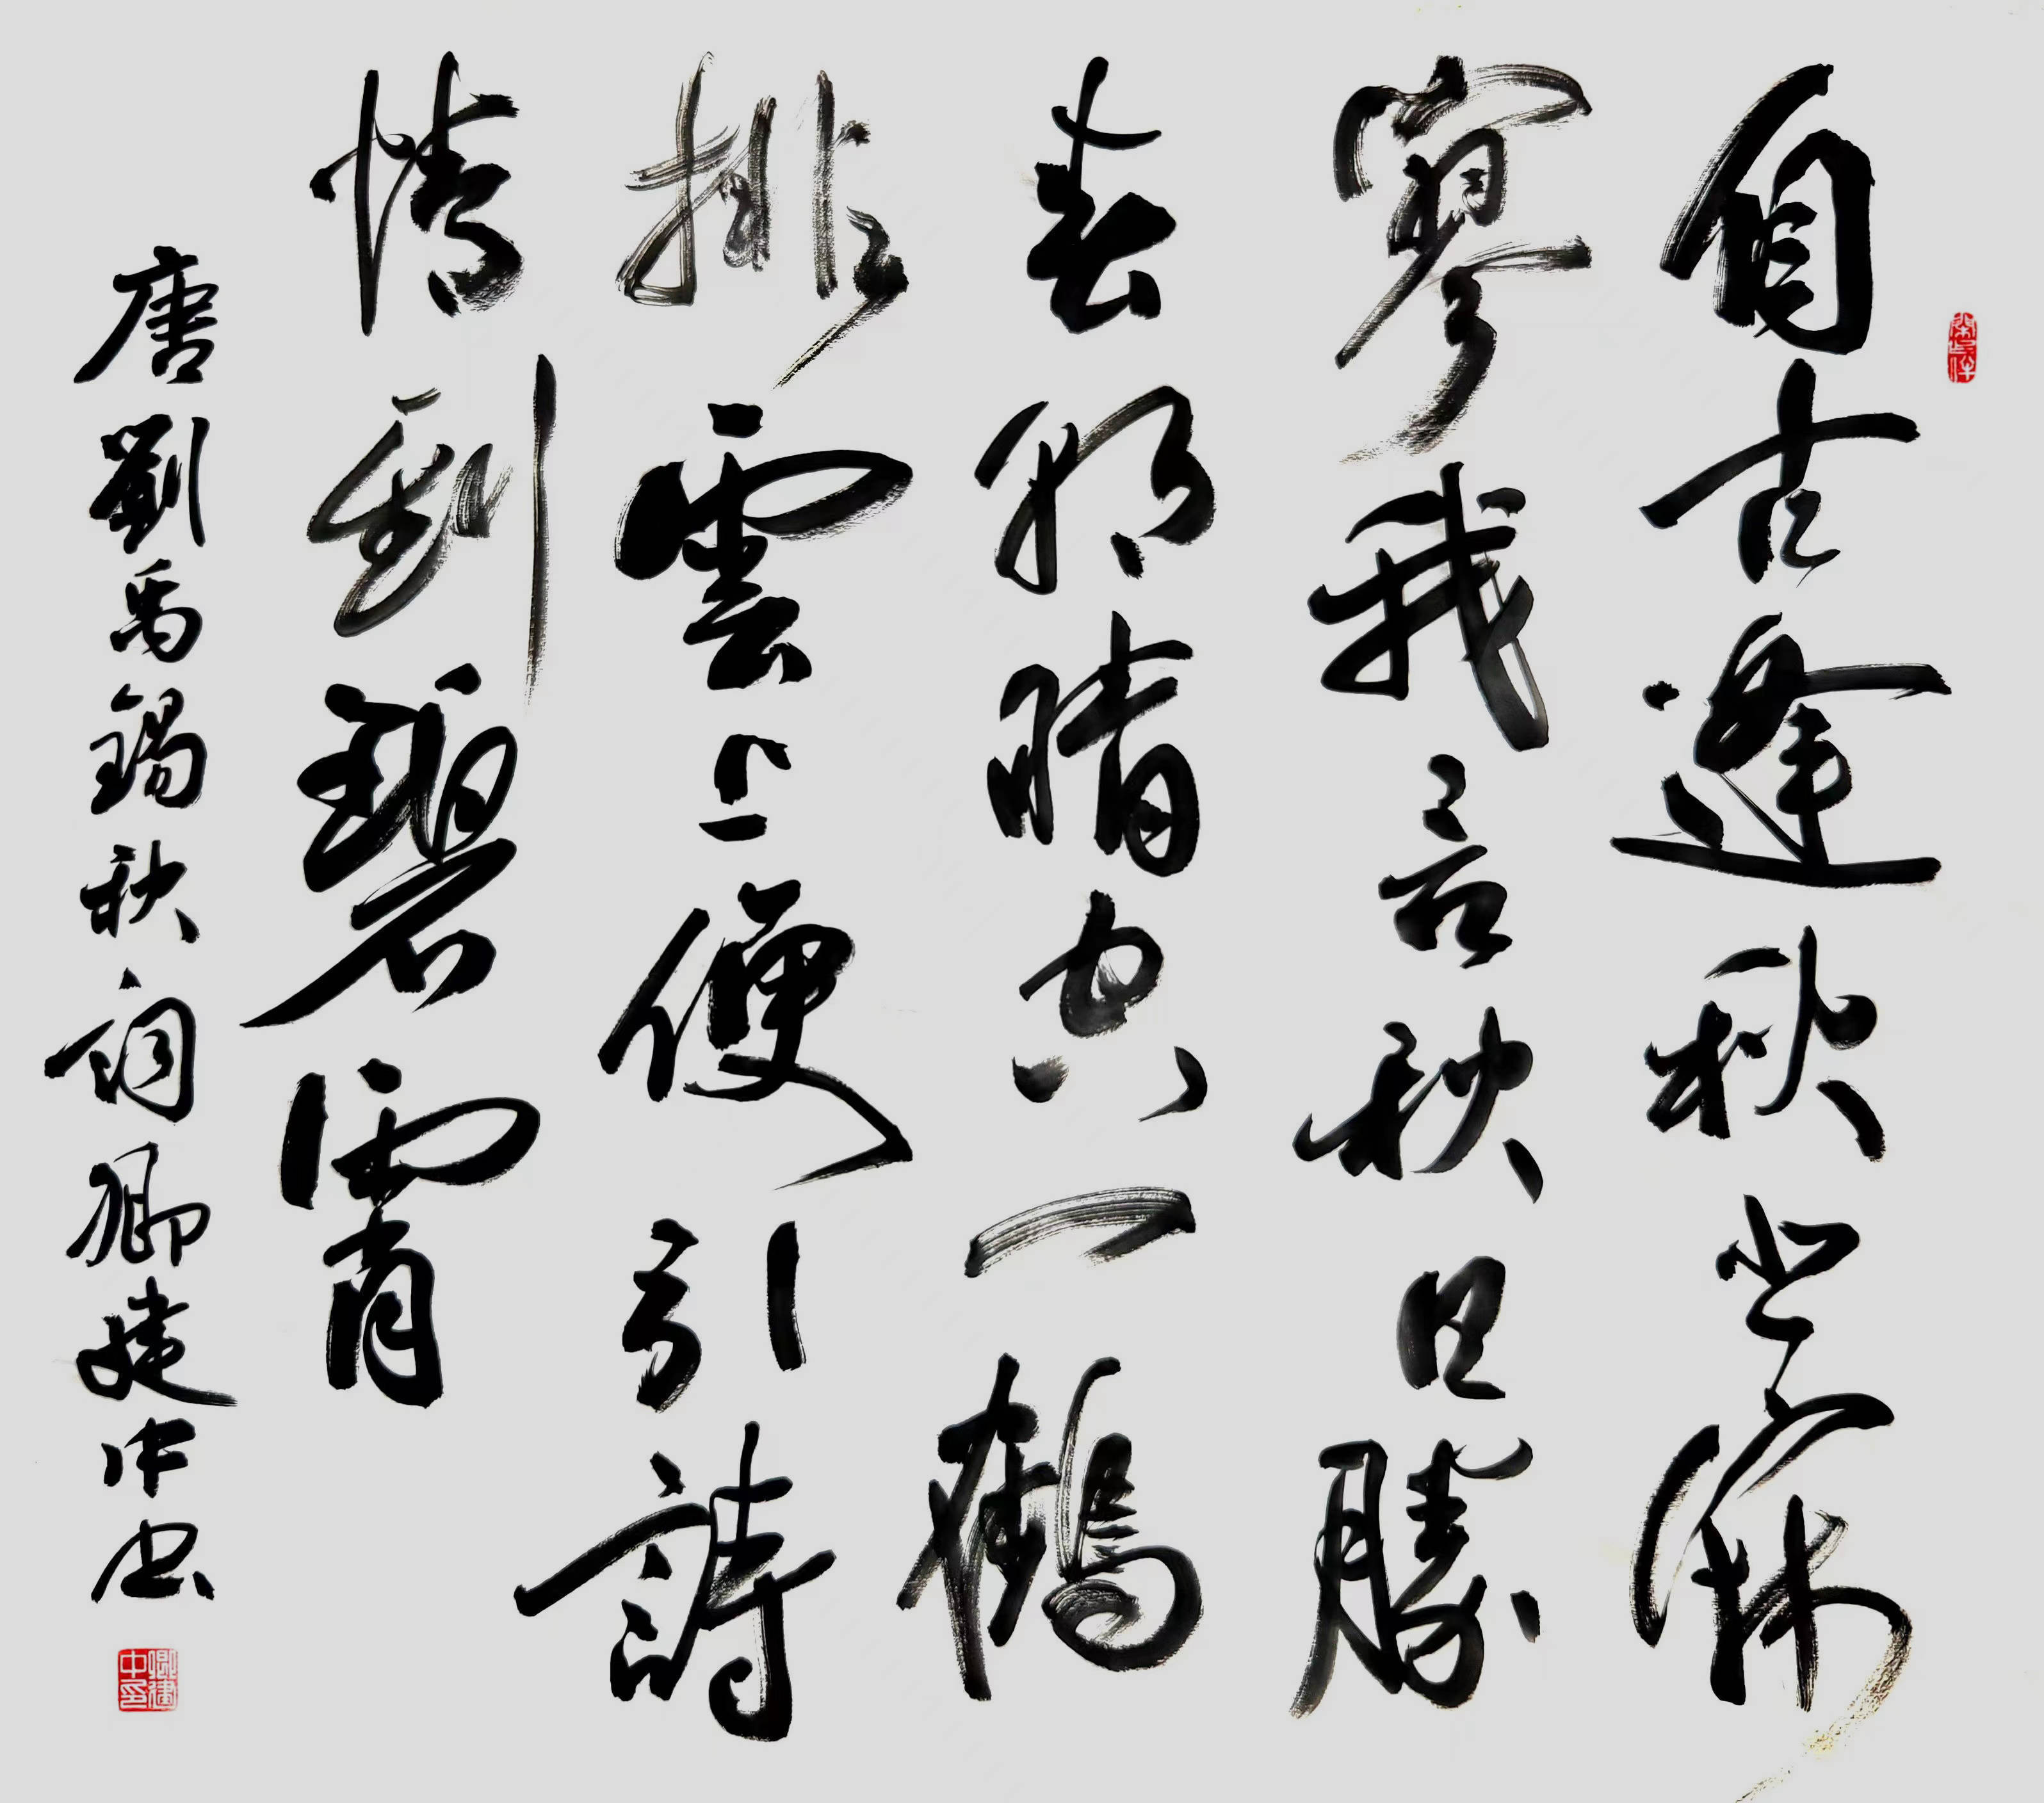 自古逢秋悲寂
寥我言秋日勝
春朝晴空一鶴
排雲上便引詩
情到碧霄
唐劉禹錫秋詞卿建中書
卿建中印